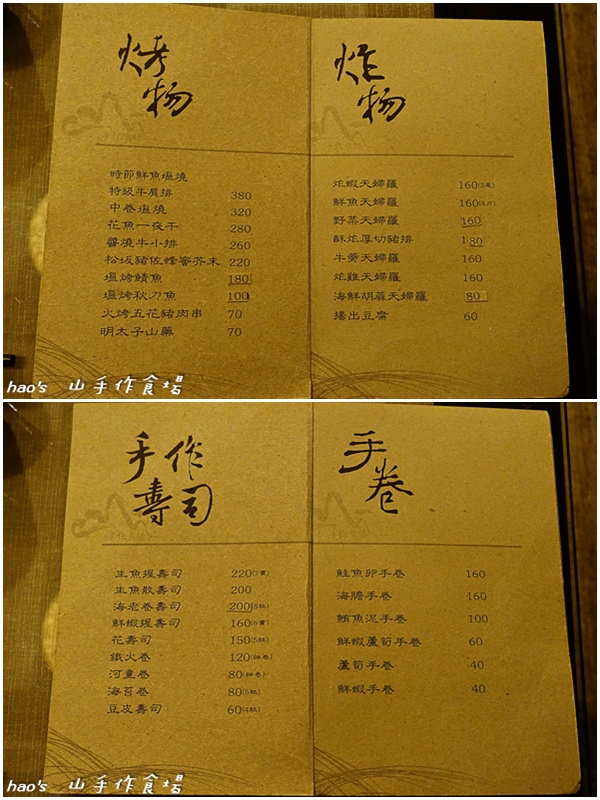 烤物
時節鮮魚塩燒
特級牛肩排 380
中卷塩燒 320
花魚一夜干 280
醬燒牛小排 260
松坂豬佐蜂蜜芥末 220
塩烤鯖魚 180
塩烤秋刀魚 100
火烤五花豬肉串 70
明太子山藥 70
炸物
炸蝦天婦羅 160
鮮魚天婦羅 160
野菜天婦羅 160
酥炸厚切豬排 180
牛蒡天婦羅 160
炸雞天婦羅 160
海鮮胡蔴天婦羅 80
揚出豆腐 60
hao's 山手作食場
手作壽司
生魚握壽司 220(7貫)
生魚散壽司 200
海老卷壽司 200(8顆)
鮮蝦握壽司 160(6貫)
花壽司 150(5顆)
鐵火卷 120(細卷)
河童卷 80(細卷)
海苔卷 80(5顆)
豆皮壽司 60(4顆)
手卷
鮭魚卵手卷 160
海膽手卷 160
鮪魚泥手卷 100
鮮蝦蘆筍手卷 60
蘆筍手卷 40
鮮蝦手卷 40
hao's 山手作食場